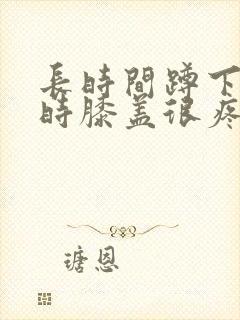 長時間蹲下
時膝盖很疼
瑭恩